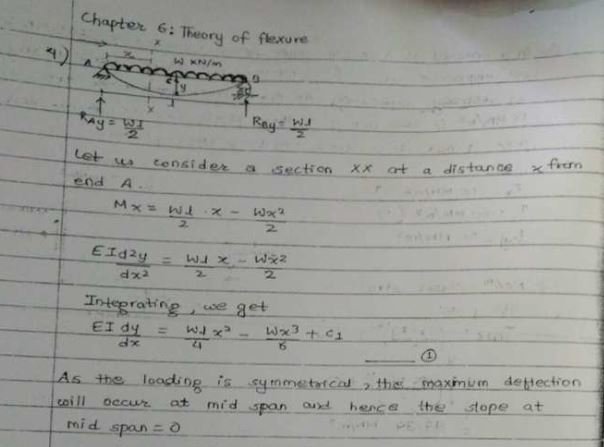 Chapter 6: Theory of flexure
4.)
x
x
W KN/m
A
C
B
y
x
RAy = Wl/2
RBy = Wl/2
Let us consider a section xx at a distance x from
end A.
Mx = Wl/2 . x - Wx²/2
EI d²y/dx² = Wl/2 x - Wx²/2
Integrating, we get
EI dy/dx = Wl/4 x² - Wx³/6 + C1
①
As the loading is symmetrical, the maximum deflection
will occur at mid span and hence the slope at
mid span = 0